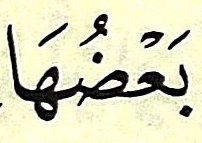 بَعْضُهَا